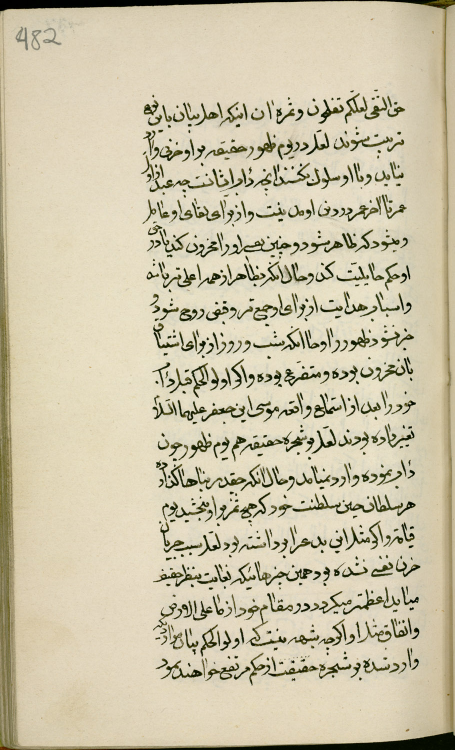 482
حق التقی لعلکم تفلحون و ثمره ان اینکه اهل بیان باین نهج
تربیت شوند لعل در یوم ظهور حقیقه بر او حزنی وارد
نیاید و با او سلوک نکنند انچه داب انها است چه عبد
عمر تا اخر عمر در دین او من نیت و از برای بقای او عامل
و میشود که ظاهر شود و حین او را محزون کند یا در
او حکم حاییلیت کند و حال آنکه بظاهر از همه اعلی تر باشد
و اسباب هدایت از برای او جمع تر وقتی روح شود و
خبر شود ظهور را و حال آنکه شب و روز از برای اشتیاق
بان محزون بوده و متضرع بوده و اکر اولو الحکم قبل داب
خود را بعد از استماع واقعه موسی ابن جعفر علیهما السلام
تغییر داده بودند لعل بر شجره حقیقه هم یوم ظهور چون
داب نبوده وارد نمیامد و حال آنکه چقدر بناها گذارده
هر سلطان حین سلطنت خود که هیچ ثمر بر او نبخشید یوم
قیامة و اکر مثل این بدع را برداشته بود لعل سبب جریان
حزن نفسی نشده بود همین حزنها ئیکه بغایت بنظر حقیر
میاید اعظم تر میکردد در مقام خود از ما علی الارض
و انفاق مثل او اکر چه شبهه نیست که اولو الحکم بیان موارد یکه
وارد شده بر شجره حقیقت از حکم مرتفع خواهند نمود